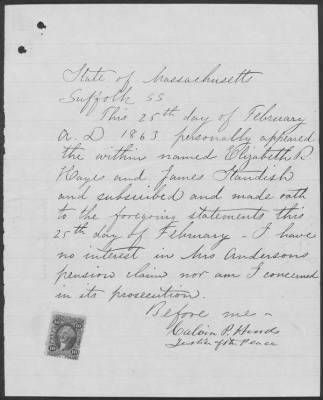 State of Massachusetts
Suffolk SS
This 25th day of February
A. D 1863 personally appeared
the within named Elizabeth R
Hayes and James Standish
and subscribed and made oath
to the foregoing statements this
25th day of February - I have
no interest in Mrs Andersons
pension claim nor am I concerned
in its prosecution.
Before me -
Calvin P. Hinds
Justice of the Peace
10 10